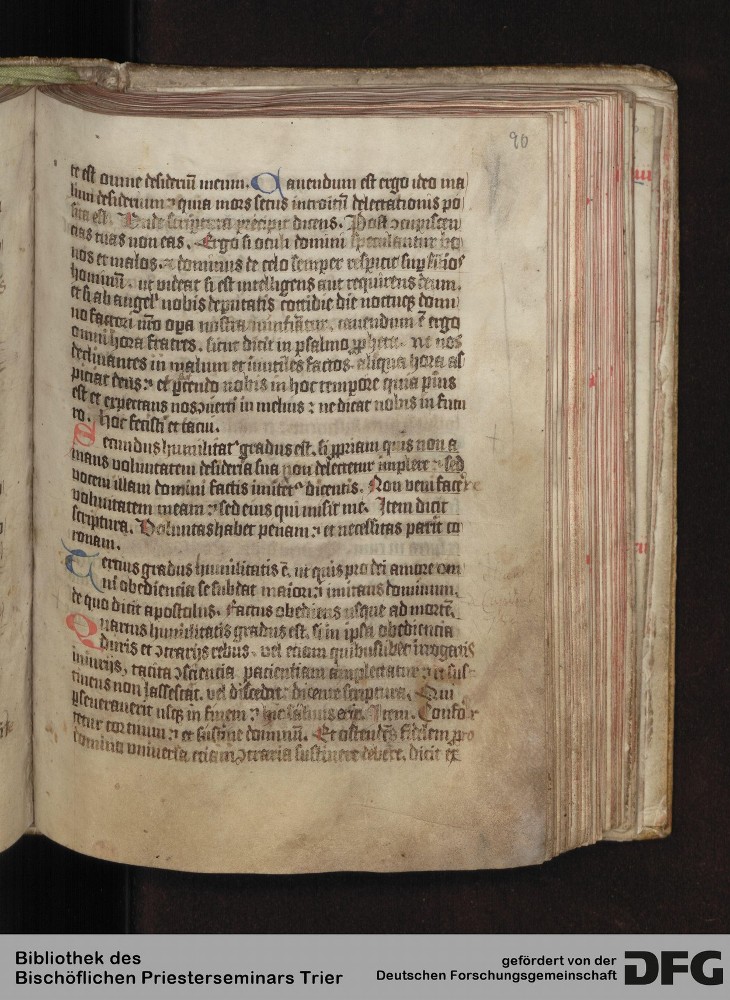 90
te est omne desideriū meum. Cauendum est ergo ideo ma
lum desiderium ⁊ quia mors secus introitū delectationis po
sita est. Vnde scriptura precipit dicens. Post ↄcupiscen
cias tuas non eas. Ergo si oculi domini speculantur bo
nos et malos. ⁊ dominus de celo semper respicit sup̄ filios
hominū. ut videat si est intelligens aut requirens deum.
et si ab angel' nobis deputatis cottidie die noctuqꝫ domi
no factori nr̄o op̄a nostra nunciātur. cauendum ē ergo
omni hora fratres. sicut dicit in psalmo ꝓpheta. ne nos
declinantes in malum et inutiles factos. aliqua hora as
piciat deus ⁊ et ꝑcendo nobis in hoc tempore quia pius
est et expectans nos ↄuerti in melius ⁊ ne dicat nobis in futu
ro. hoc fecisti et tacui.
Secundus humilitat' gradus est. si ꝓpriam quis non a
mans voluntatem desideria sua non delectetur implere ⁊ sed
vocem illam domini factis imitet' dicentis. Non veni facere
voluntatem meam ⁊ sed eius qui misit me. Item dicit
scriptura. Voluntas habet penam ⁊ et necessitas parit co
ronam.
Tercius gradus humilitatis ē. ut quis pro dei amore om
ni obediencia se subdat maiori ⁊ imitans dominum.
de quo dicit apostolus. Factus obediens usque ad mortē.
Quartus humilitatis gradus est. si in ipsa obediencia
duris et ↄtrarijs rebus. vel etiam quibuslibet irrogatis
iniurijs, tacita ↄsciencia pacientiam amplectatur ⁊ et sus
tinens non lassescat. vel discedat ⁊ dicente scriptura. Qui
ꝑseuerauerit usqꝫ in finem ⁊ hic saluus erit. Item. Confor
tetur cor tuum ⁊ et sustine dominū. Et ostendēs fidelem pro
domino vniuersa etiam ↄtraria sustinere debere. dicit ex
Bibliothek des
Bischöflichen Priesterseminars Trier
gefördert von der
Deutschen Forschungsgemeinschaft
DFG